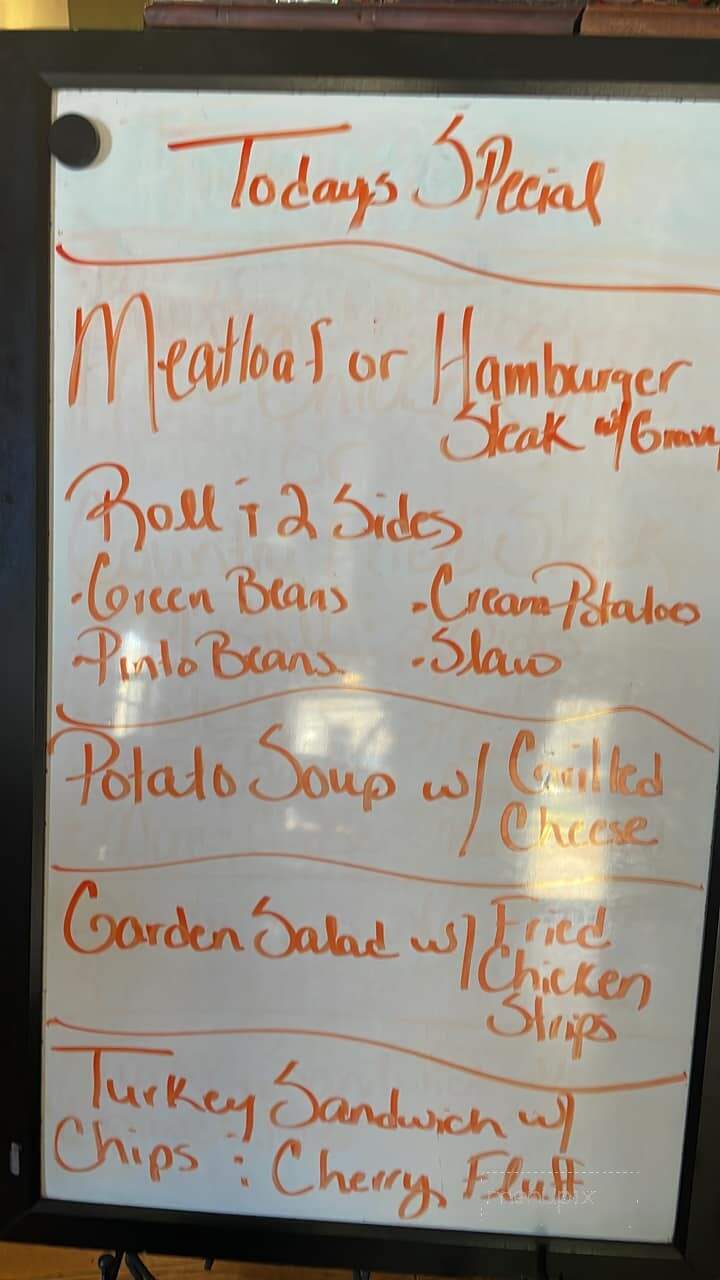 Todays Special
Meatloaf or Hamburger
Steak w/ Gravy
Roll & 2 Sides
-Green Beans -Cream Potatoes
-Pinto Beans -Slaw
Potato Soup w/ Grilled
Cheese
Garden Salad w/ Fried
Chicken
Strips
Turkey Sandwich w/
Chips & Cherry Fluff
menupix